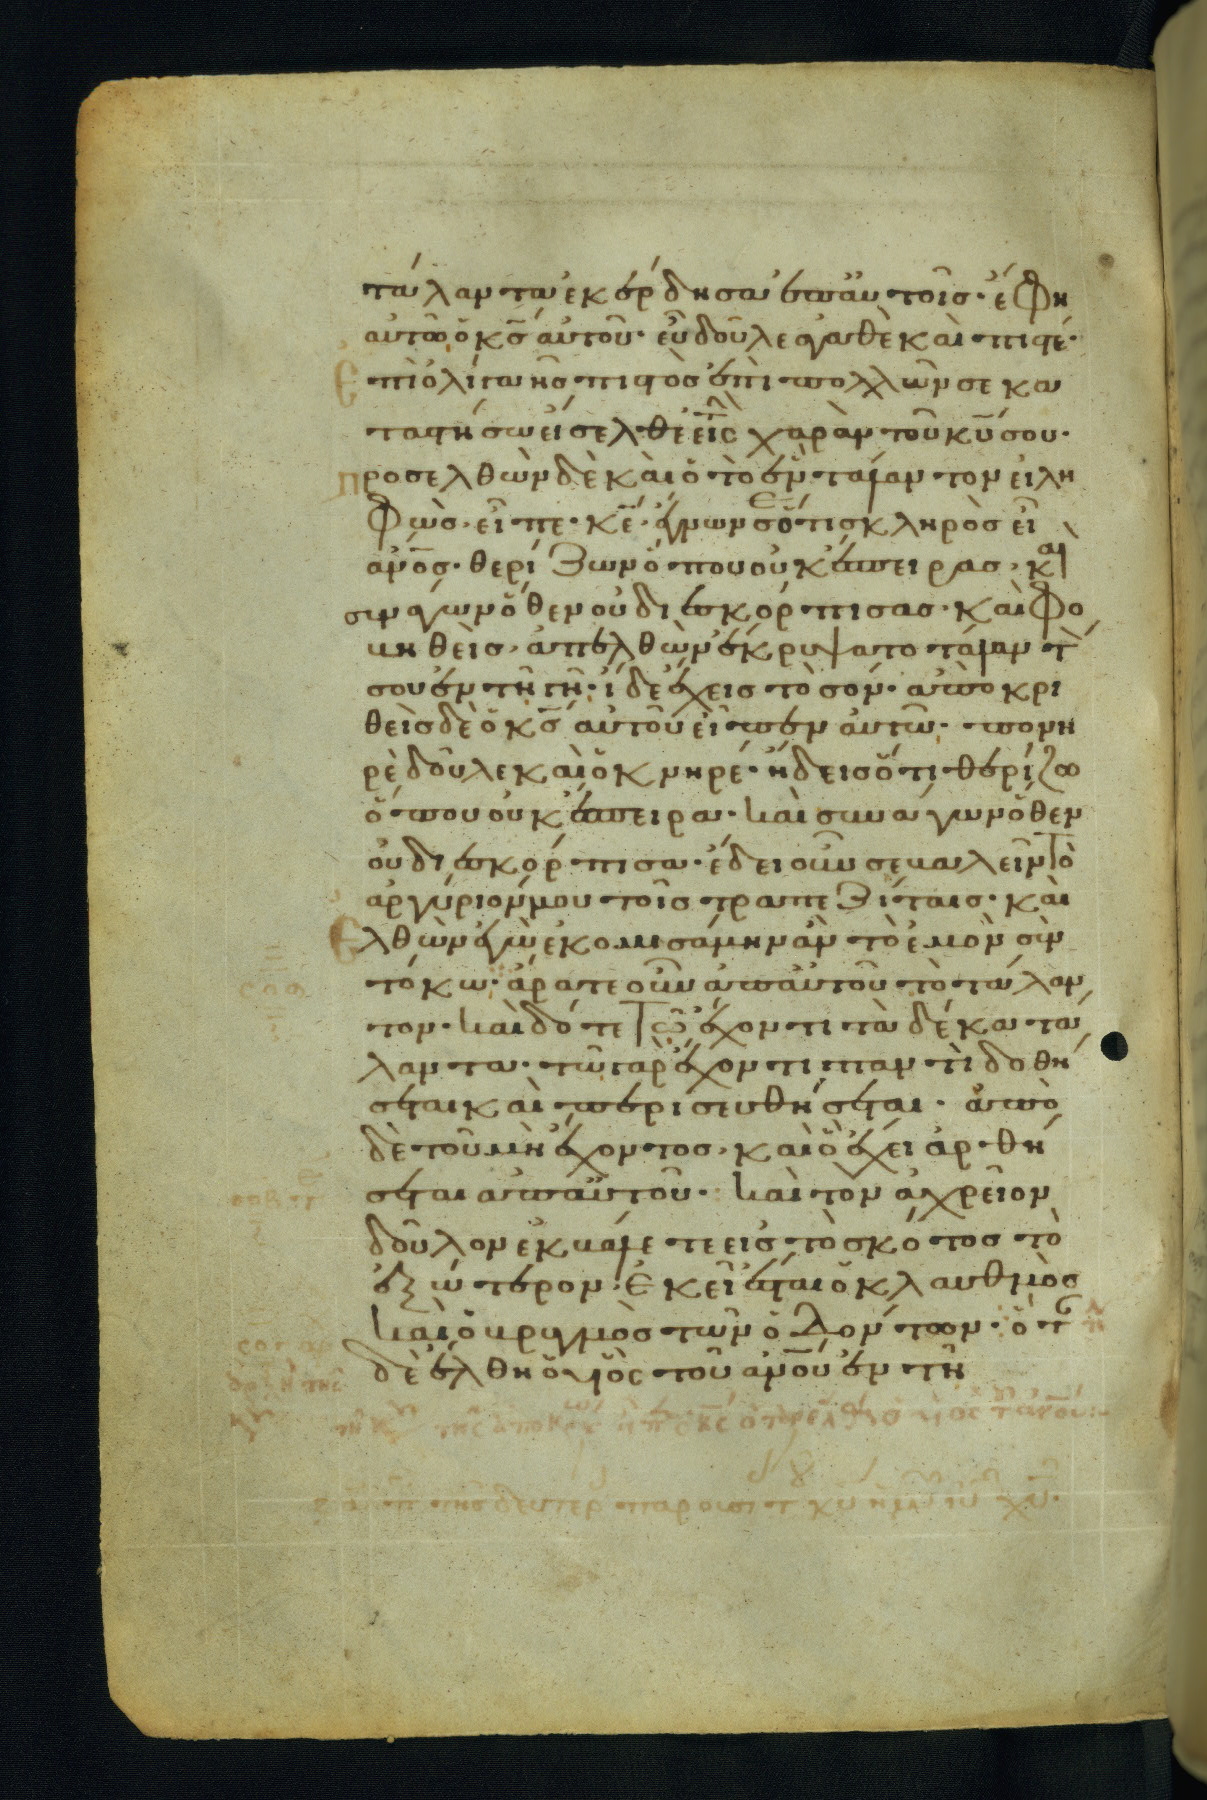 τάλαντα ἐκέρδησα ἐπ αὐτοῖσ· ἔφη
αὐτῶ ὁ κ̅σ̅ αὐτοῦ· εὖ δοῦλε ἀγαθὲ καὶ πιστέ·
Ἐπὶ ὀλίγα ἦσ πιστὸσ ἐπὶ πολλῶν σε κα
ταστήσω εἴσελθε εἰς χαρὰν τοῦ κ̅υ̅ σου·
Προσελθὼν δὲ καὶ ὁ τὸ ἓν τάλαντον εἰλη
φὼσ· εἶπε· κ̅ε̅· ἔγνων σε ὅτι σκληρὸσ εἶ
α̅ν̅ο̅σ̅· θερίζων ὅπου οὐκ ἔσπειρασ· καὶ
συνάγων ὅθεν οὐ διεσκόρπισασ· καὶ φο
βηθεὶσ· ἀπελθὼν ἔκρυψα το τάλαντ
σου ἐν τῆ γῆ· ἴδε ἔχεισ τὸ σόν· ἀποκρι
θεὶσ δὲ ὁ κ̅σ̅ αὐτοῦ εἶπεν αὐτῶ· πονη
ρὲ δοῦλε καὶ ὀκνηρέ· ἤδεισ ὅτι θερίζω
ὅπου οὐκ ἔσπειρα· καὶ συνάγων ὅθεν
οὐ διεσκόρπισα· ἔδει οὖν σε βαλεῖν τὸ
ἀργύριόν μου τοῖσ τραπεζίταισ· καὶ
Ἐλθὼν ἐγὼ ἐκομισάμην ἂν τὸ ἐμὸν σὺν
τόκω· ἄρατε οὖν ἀπ αὐτοῦ τὸ τάλαν
τον· καὶ δότε τῶ ἔχοντι τὰ δέκα τά
λαντα· τῶ γὰρ ἔχοντι παντὶ δοθή
σεται καὶ περισευθήσεται· ἀπὸ
δὲ τοῦ μὴ ἔχοντοσ· καὶ ὃ ἔχει ἀρθή
σεται ἀπ αὐτοῦ· καὶ τον ἀχρεῖον
δοῦλον ἐκβάλετε εἰσ τὸ σκότοσ τὸ
ἐξώτερον· ἐκεῖ ἔσται ὁ κλαυθμὸσ
καὶ ὁ βρυγμὸσ τῶν ὀδόντων· ὅτ
δὲ ἔλθη ὁ υἱὸς τοῦ α̅ν̅ο̅υ̅ ἐν τῆ